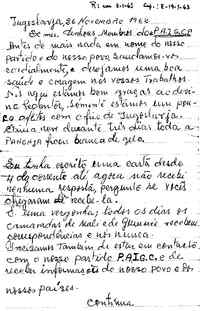 R; em 8-1-63
Jugoslavia, 26 Novembro 1962
Ex mos, Senhores Membros do P.A.I.G.C
Antes de mais nada em nome do nosso
partido e do nosso povo saudamos-vos
cordialmente, e desejamos uma boa
saúde e coragem nos vossos trabalhos.
Nós aqui estamos bem graças ao
afecto com o frio de Jugoslavia.
neve durante três dias toda a
ficou branca de gelo.
Eu tinha escrito uma carta desde
4 do corrente até agora não recebi
nenhuma resposta, pergunto se Vocês
chegaram de recebe-la.
É uma vergonha, todos os dias os
camaradas de Mali e de Guinée recebem
correspondências e nós nunca.
Precisamos também de estar em contacto
com o nosso partido P.A.I.G.C. e de
receber informações do nosso povo e do
nosso país.
continua